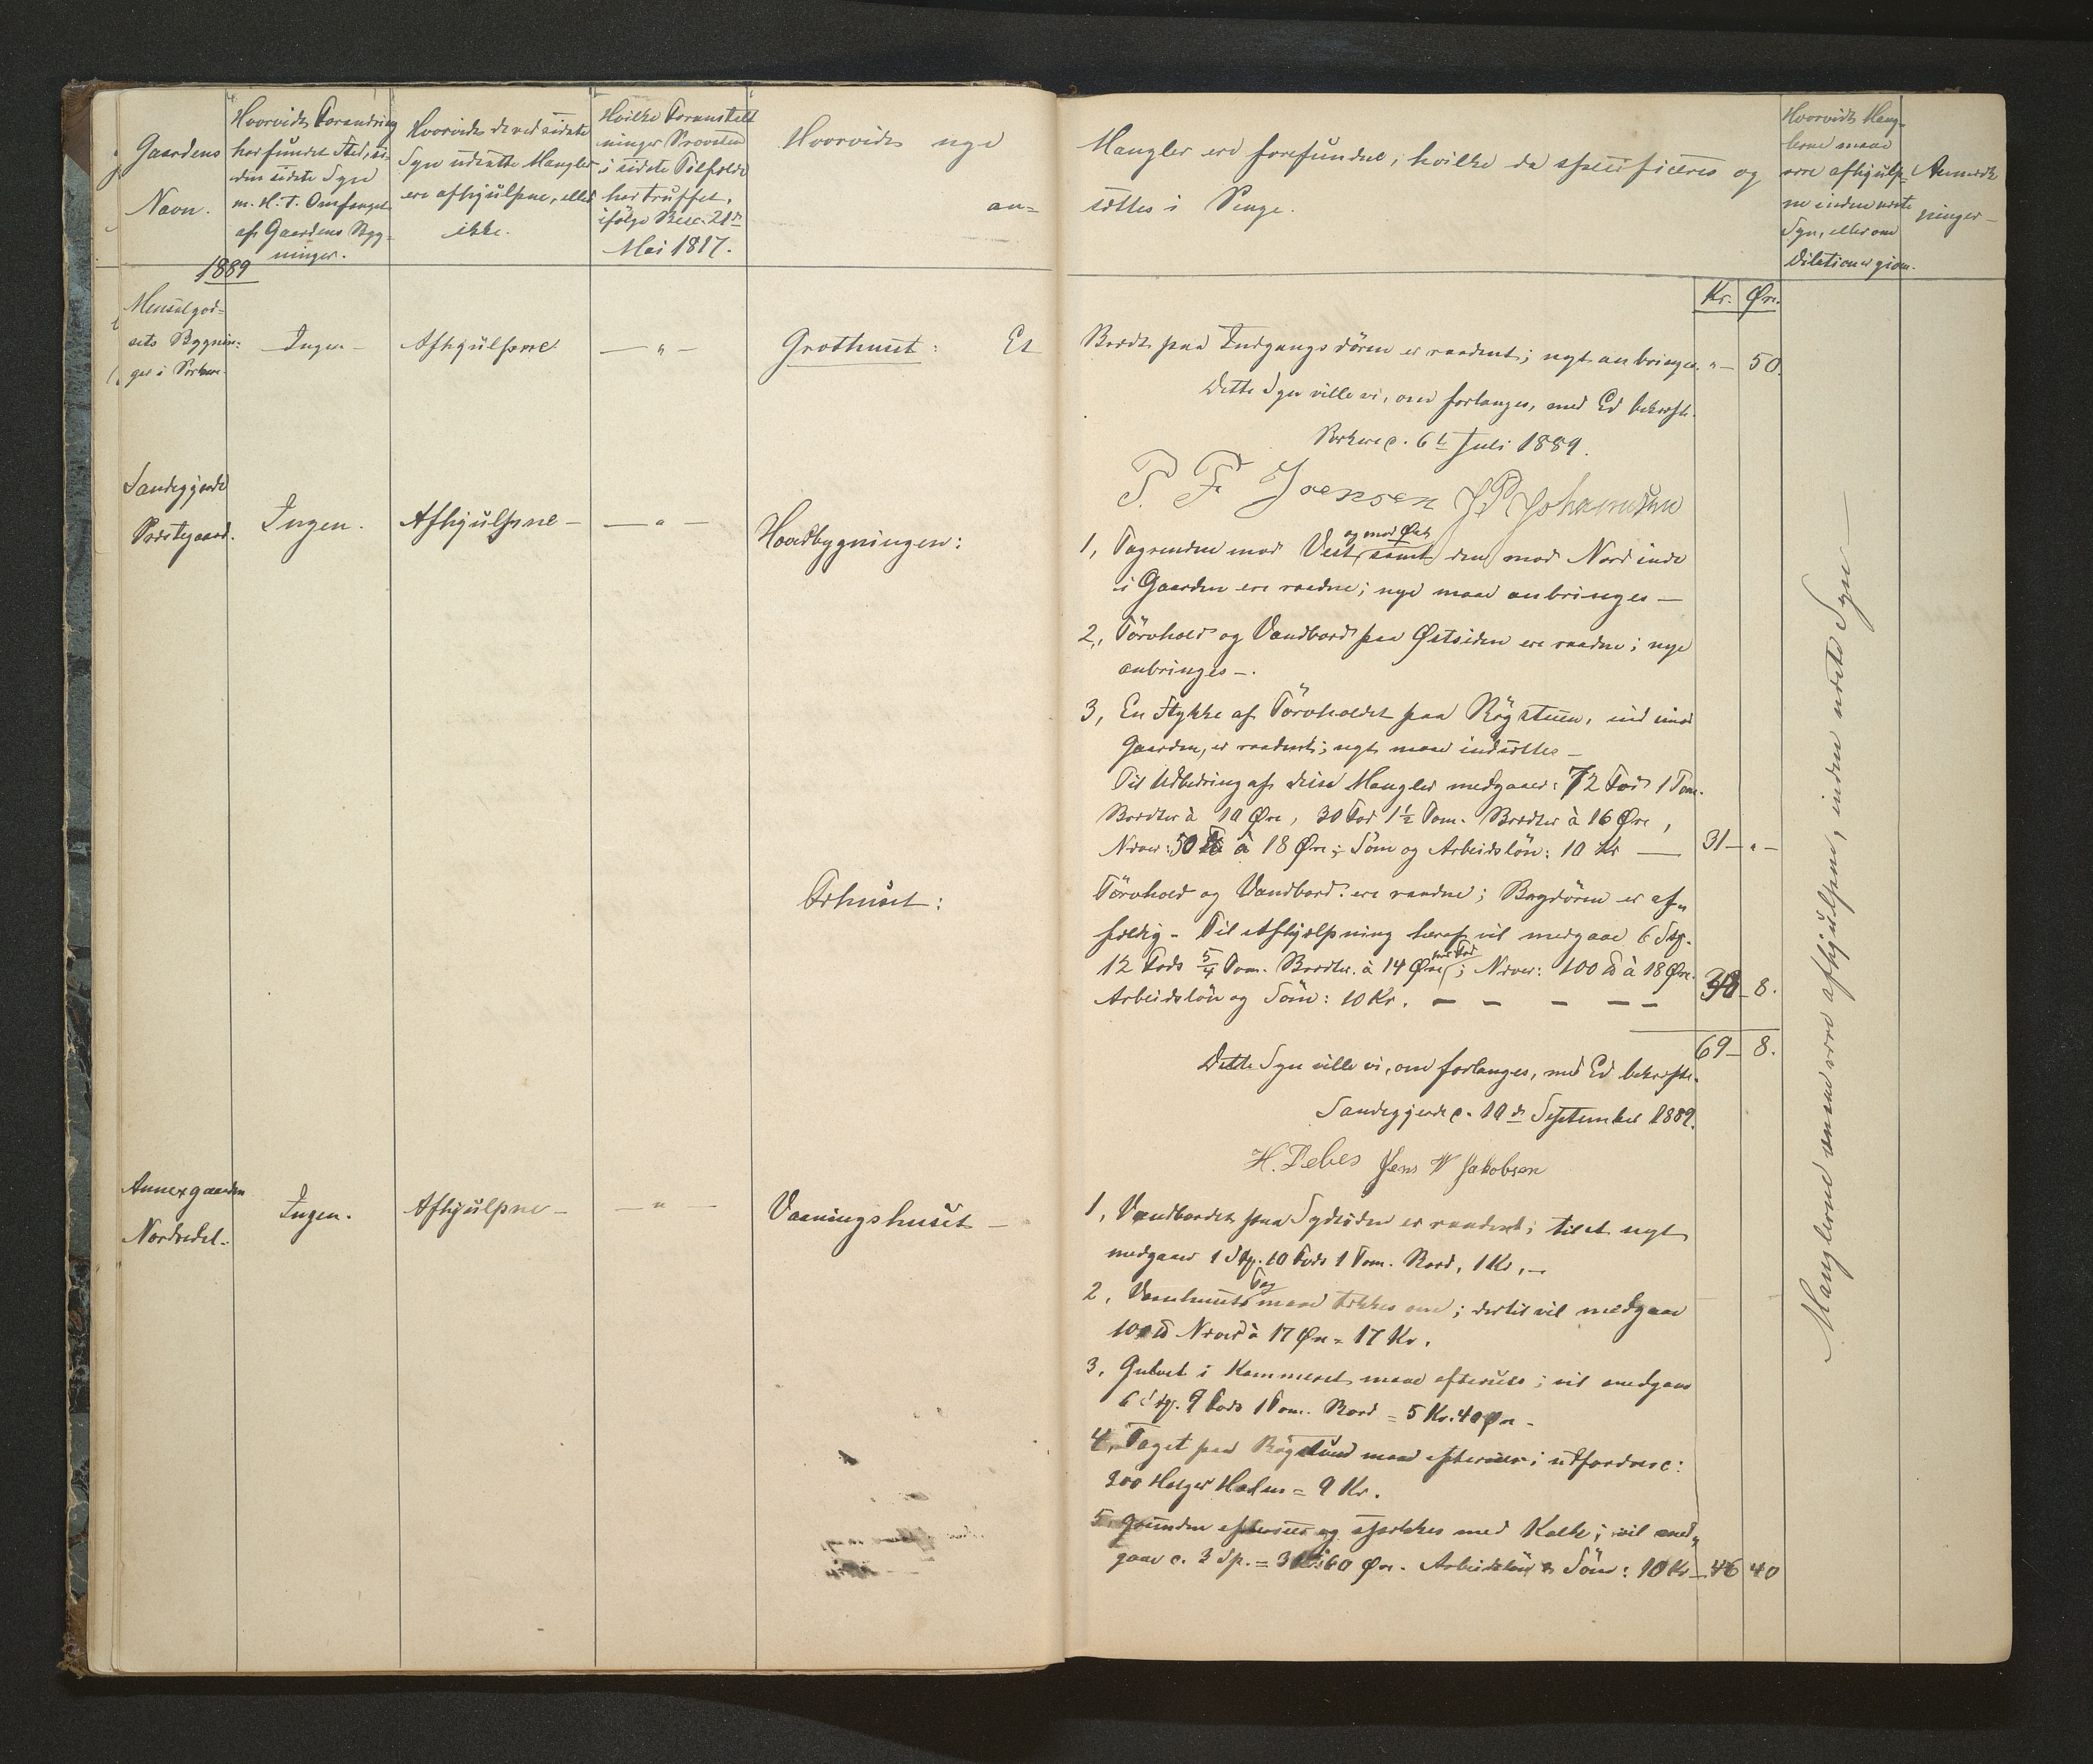 Gaardens
Navn.
Hvorvidt Forandring
har fundet Sted, si-
den sidste Syn
m. H. T. Omfanget
af Gaardens Byg-
ninger.
Hvorvidt de ved sidste
Syn udsatte Mangler
ere afhjulpne, eller
ikke.
Hvilke Foranstalt
ninger Provsten
i sidste Tilfælde
har truffet,
ifølge Resc. 21de
Mai 1817.
Hvorvidt nye
an-
Mangler ere forefundne; hvilke da specificeres og
sættes i Penge.
Hvorvidt Mang-
lerne maae
være afhjulp-
ne inden næste
Syn, eller om
Dilation er given.
Anmærk
ninger
1889
Kr. Øre.
Mensalgod-
sets Bygnin-
ger i Porkere.
Ingen
Afhjulpne
— " —
Grothuset: Et
Bræt paa Indgangsdören er raadent; nyt anbringes. " — 50.
Dette Syn ville vi, om forlanges, med Ed bekræfte.
Porkere c. 6t Juli 1889.
P. F. Joensen J P Johannesen
Sandegjerde
Præstegaard.
Ingen.
Afhjulpne —
— " —
Hovedbygningen:
1, Tagrenden mod Vest og mod Øst samt den mod Nord inde
i Gaarden ere raadne; nye maae anbringes —
2, Törvhold og Vandbord paa Østsiden ere raadne; nye
anbringes —.
3, En Stykke af Törvholdet paa Rögstuen, ind imod
Gaarden, er raadent; nyt maae indsættes —
Til Udbedring af disse Mangler medgaaer: 72 Fod 1 Tom.
Brædter à 10 Øre, 30 Fod 1½ Tom. Brædter à 16 Øre,
Næver: 50 ℔ à 18 Øre; Söm og Arbeidslön: 10 Kr — 31 — " —
Frhuset:
Törvhold og Vandbord ere raadne; Bagdören er af-
fældig - Til Afhjælpning heraf vil medgaae 6 Stk.
12 Fods 5/4 Tom. Brædter à 14 Øre pr Fod; Næver: 100 ℔ à 18 Øre.
Arbeidslön og Söm: 10 Kr. — — — — — 38 — 8.
69 — 8.
Dette Syn ville vi, om forlanges, med Ed bekræfte.
Sandegjerde c. 10de September 1889.
H. Debes Jens W Jakobsen
Annexgaarden
Nordredal.
Ingen.
Afhjulpne —
— " —
Vaaningshuset —
1, Vandbordet paa Sydsiden er raadent; til et nyt
medgaaer 1 Stk. 10 Fods 1 Tom. Bord, 1 Kr, —
2, Vaanhusets Tag maae tækkes om; dertil vil medgaae
100 ℔ Næver à 17 Øre = 17 Kr.
3, Gulvet i Kammeret maae efterses; vil medgaae
6 Stk. 9 Fods 1 Tom. Bord = 5 Kr. 40 Øre —
4, Taget paa Rögstuen maae efterses; udfordres c:
300 Helger Halm = 9 Kr.
5, Grunden efterses og spækkes med Kalk; vil med-
gaae c. 3 Sp. = 3 Kr. 60 Øre. Arbeidslön & Söm: 10 Kr — 46 40
Manglerne maae være afhjulpne, inden næste Syn —